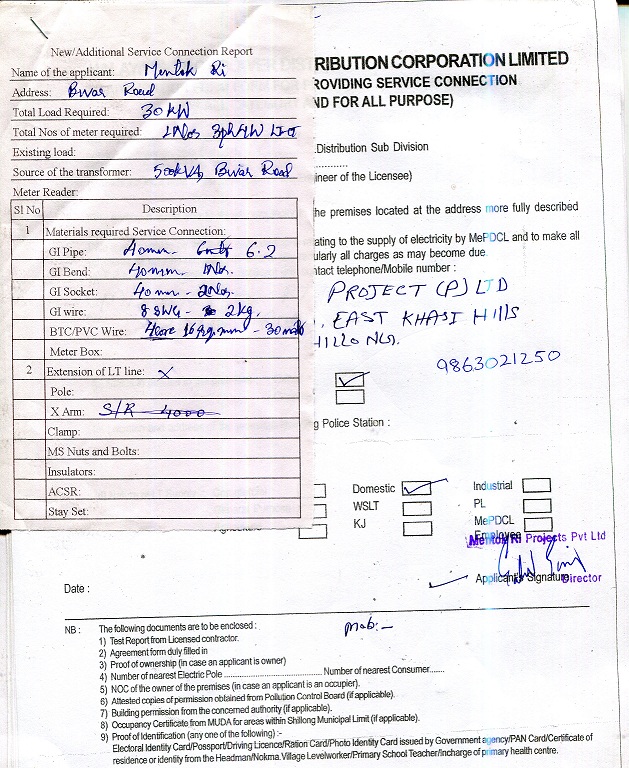 New/Additional Service Connection Report
Name of the applicant: Mentok Ri
Address: Bwar Road
Total Load Required: 30 KW
Total Nos of meter required: 1 No 3ph 4W
Existing load:
Source of the transformer: 500kVA, Bwar Road
Meter Reader:
Sl No Description
1 Materials required Service Connection:
GI Pipe: 40mm - 6.2
GI Bend: 40mm - 1No.
GI Socket: 40mm - 2Nos
GI wire: 8 SWG - 2kg.
BTC/PVC Wire: 4core 16sq.mm - 30mtr
Meter Box:
2 Extension of LT line: X
Pole:
X Arm: S/R 4000
Clamp:
MS Nuts and Bolts:
Insulators:
ACSR:
Stay Set:
RIBUTION CORPORATION LIMITED
ROVIDING SERVICE CONNECTION
ND FOR ALL PURPOSE)
.Distribution Sub Division
ineer of the Licensee)
he premises located at the address more fully described
ating to the supply of electricity by MePDCL and to make all
ularly all charges as may become due.
ntact telephone/Mobile number :
PROJECT (P) LTD
, EAST KHASI HILLS
9863021250
g Police Station :
Domestic Industrial
WSLT PL
KJ MePDCL
Employee
Mentok Ri Projects Pvt Ltd
Applicant's Signature
Director
Date :
Mob:-
NB : The following documents are to be enclosed :
1) Test Report from Licensed contractor.
2) Agreement form duly filled in
3) Proof of ownership (in case an applicant is owner)
4) Number of nearest Electric Pole .......................... Number of nearest Consumer.......
5) NOC of the owner of the premises (in case an applicant is an occupier).
6) Attested copies of permission obtained from Pollution Control Board (if applicable).
7) Building permission from the concerned authority (if applicable).
8) Occupancy Certificate from MUDA for areas within Shillong Municipal Limit (if applicable).
9) Proof of Identification (any one of the following :-
Electoral Identity Card/Possport/Driving Licence/Ration Card/Photo Identity Card issued by Government agency/PAN Card/Certificate of
residence or identity from the Headman/Nokma.Village Levelworker/Primary School Teacher/Incharge of primary health centre.